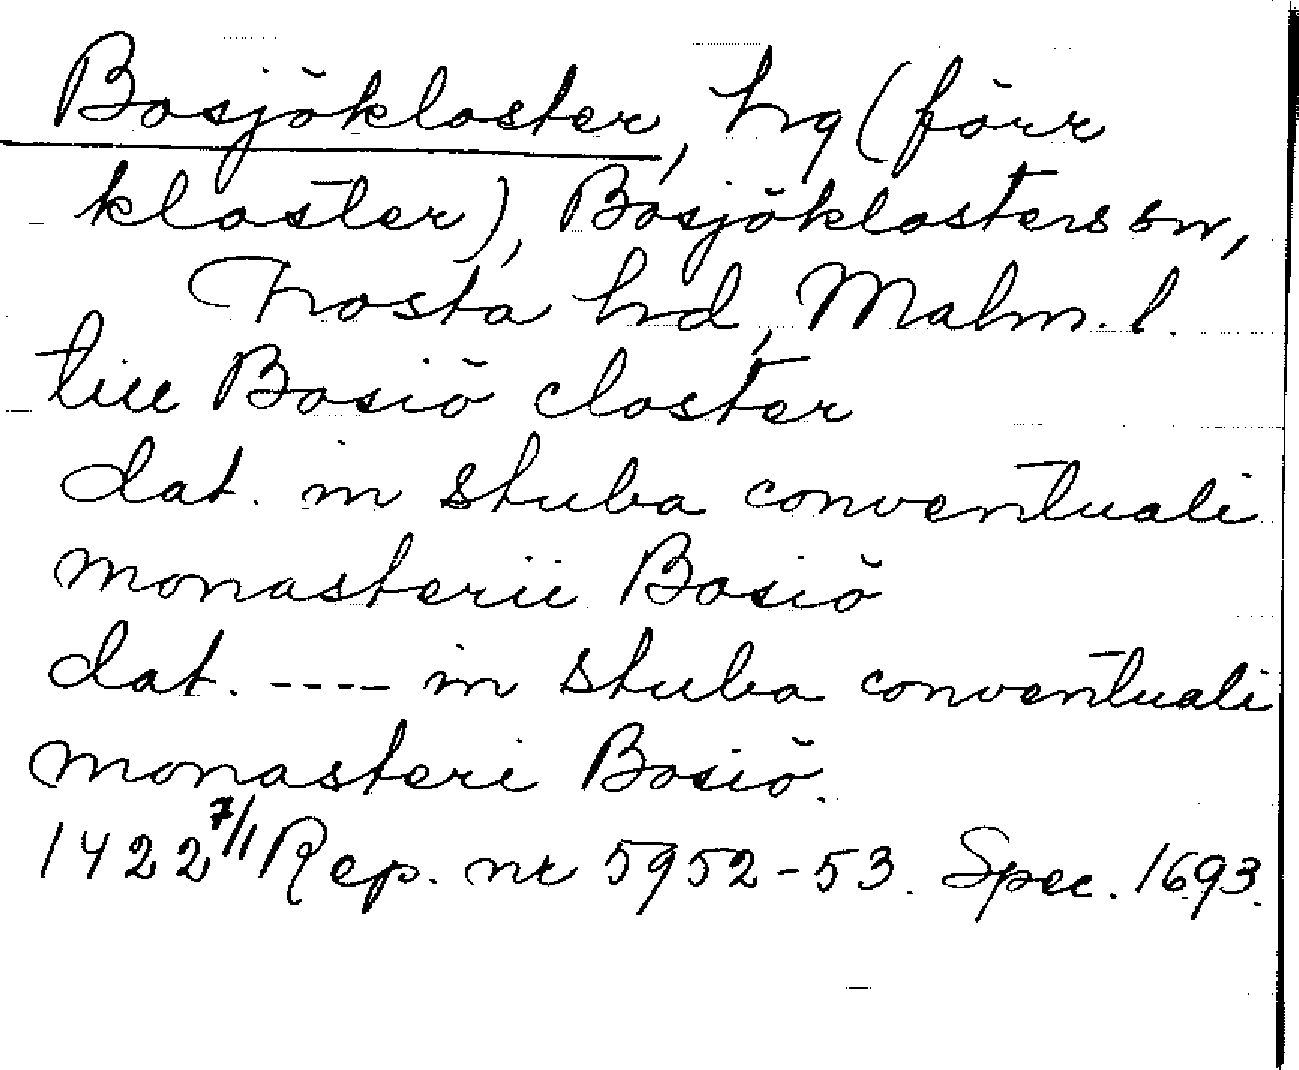 Bosjökloster, hg (förr
kloster), Bosjöklosters sn,
Frosta hd, Malm. l.
till Bosiö closter
dat. in stuba conventuali
monasterii Bosiö
dat. ---- in stuba conventuali
monasteri Bosiö.
1422 7/1 Rep. nr 5952-53. Spec. 1693.